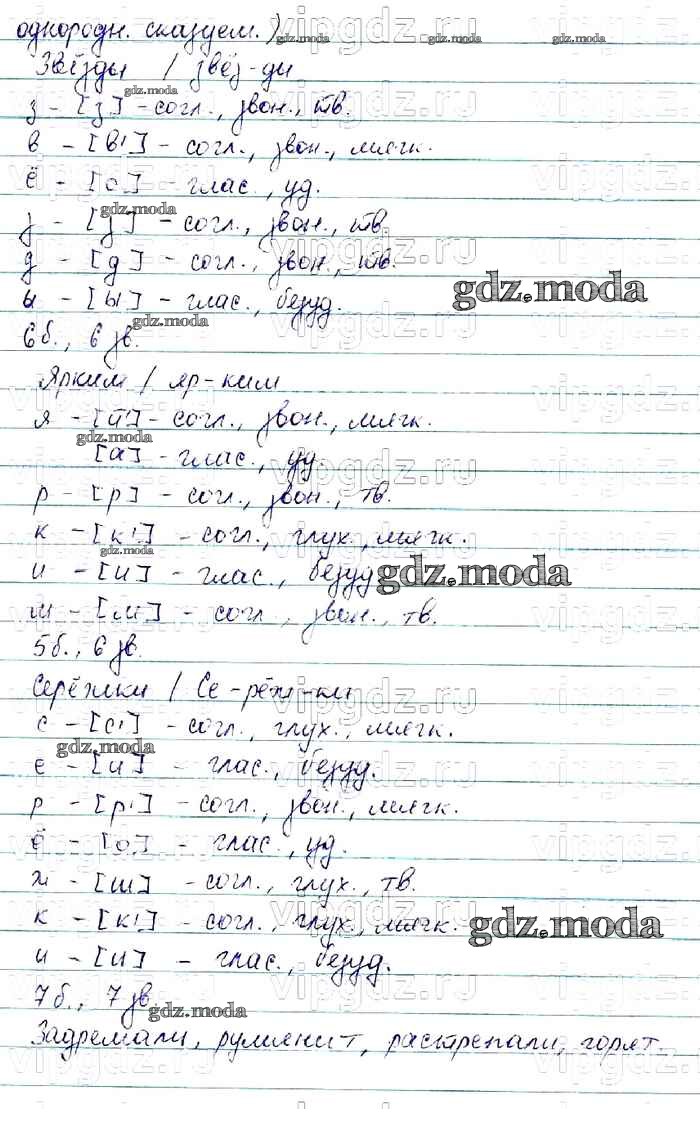 однородн. сказуем.)
Звёзды / звёз-ды
з - [з] - согл., звон., тв.
в - [в'] - согл., звон., мягк.
ё - [о] - глас., уд.
з - [з] - согл., звон., тв.
д - [д] - согл., звон., тв.
ы - [ы] - глас., безуд.
6 б., 6 зв.
Ярким / яр-ким
я - [й'] - согл., звон., мягк.
[а] - глас., уд.
р - [р] - согл., звон., тв.
к - [к'] - согл., глух., мягк.
и - [и] - глас., безуд
м - [м] - согл., звон., тв.
5 б., 6 зв.
Серёжки / Се-рёж-ки
с - [с'] - согл., глух., мягк.
е - [и] - глас., безуд.
р - [р'] - согл., звон., мягк.
ё - [о] - глас., уд.
ж - [ш] - согл., глух., тв.
к - [к'] - согл., глух., мягк.
и - [и] - глас., безуд.
7 б., 7 зв.
Задремали, румянит, растрепали, горят.
gdz.moda
vipgdz.ru